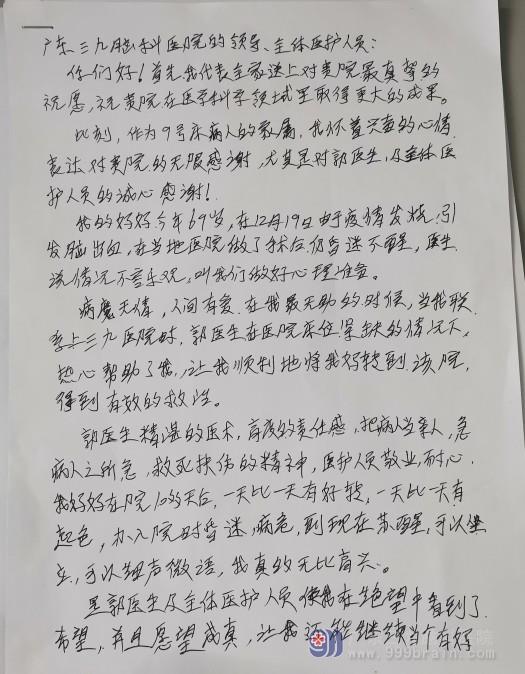 广东三九脑科医院的领导、全体医护人员：
你们好！首先我代表全家送上对贵院最真挚的
祝愿，祝贵院在医学科学领域里取得更大的成果。
此刻，作为9号床病人的家属，我怀着兴奋的心情
表达对贵院的无限感谢，尤其是对郭医生，及全体医
护人员的诚心感谢！
我的妈妈今年69岁，在12月19日由于疫情发烧引
发脑出血，在当地医院做了手术后仍昏迷不醒，医生
说情况不容乐观，叫我们做好心理准备。
病魔无情，人间有爱，在我最无助的时候，当我联
系上三九医院时，郭医生在医院床位紧缺的情况下，
热心帮助了我，让我顺利地将我妈转到该院，
得到有效的救治。
郭医生精湛的医术，高度的责任感，把病人当亲人，急
病人之所急，救死扶伤的精神，医护人员敬业、耐心，
我妈妈在院10多天后，一天比一天有好转，一天比一天有
起色，从入院时昏迷、病危，到现在苏醒，可以坐
立，可以轻声微语，我真的无比高兴。
是郭医生及全体医护人员使我在绝望中看到了
希望，并且愿望成真，让我还能继续当个有妈
院
www.999brain.com